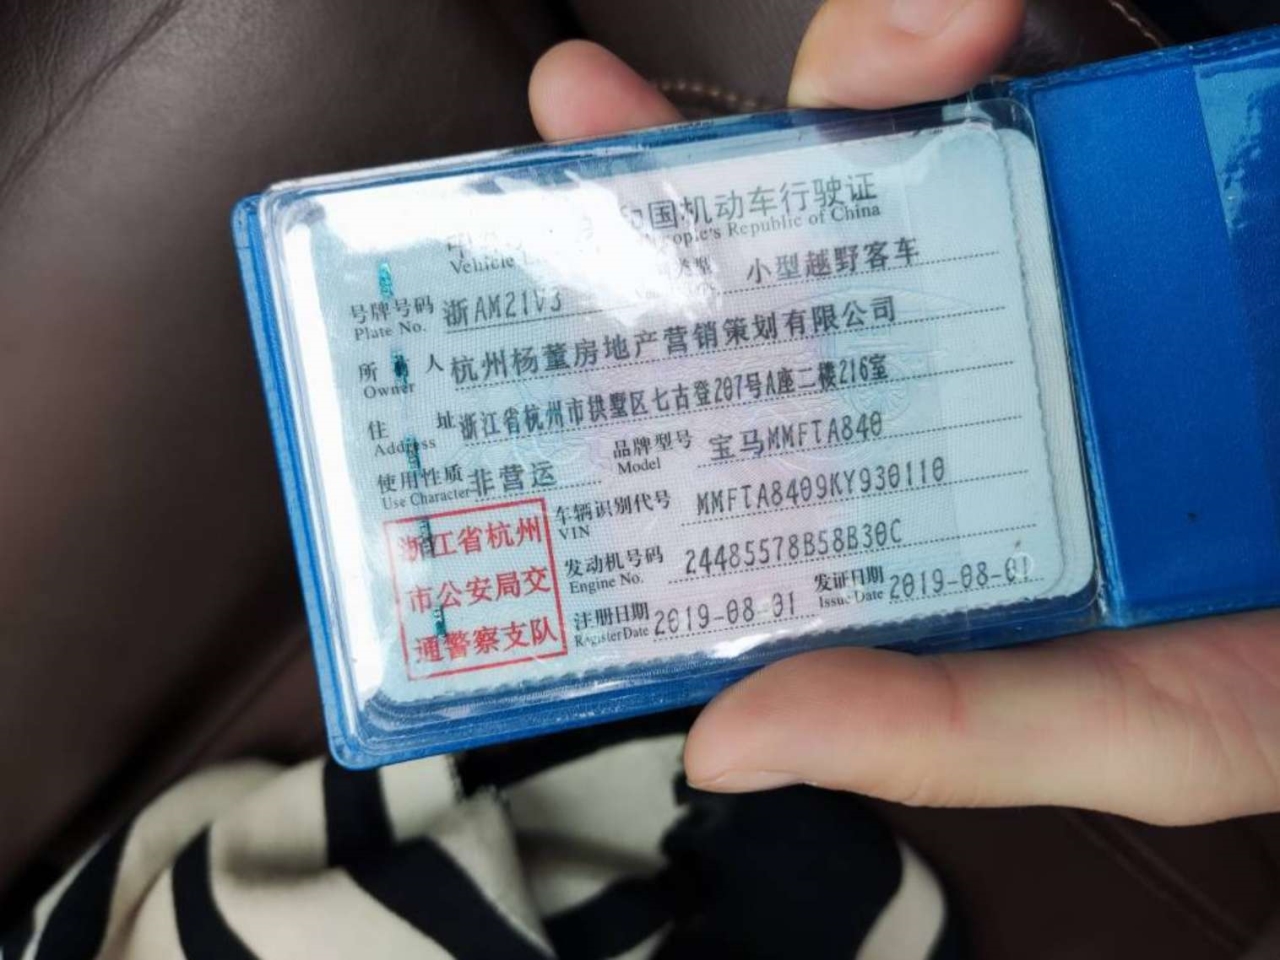 国机动车行驶证
Vehicle People's Republic of China
号牌号码 浙AM21V3 类型 小型越野客车
Plate No.
所 人 杭州杨董房地产营销策划有限公司
Owner
住 址 浙江省杭州市拱墅区七古登207号A座二楼216室
Address
使用性质 非营运 品牌型号 宝马MMFTA840
Use Character Model
车辆识别代号 MMFTA8409KY930110
VIN
发动机号码 24485578B58B30C
Engine No.
注册日期 2019-08-01 发证日期 2019-08-01
Register Date Issue Date
浙江省杭州
市公安局交
通警察支队